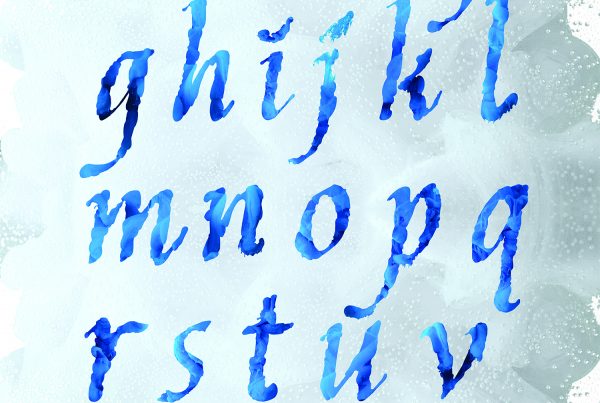 ghijkl
mnopq
rstuv